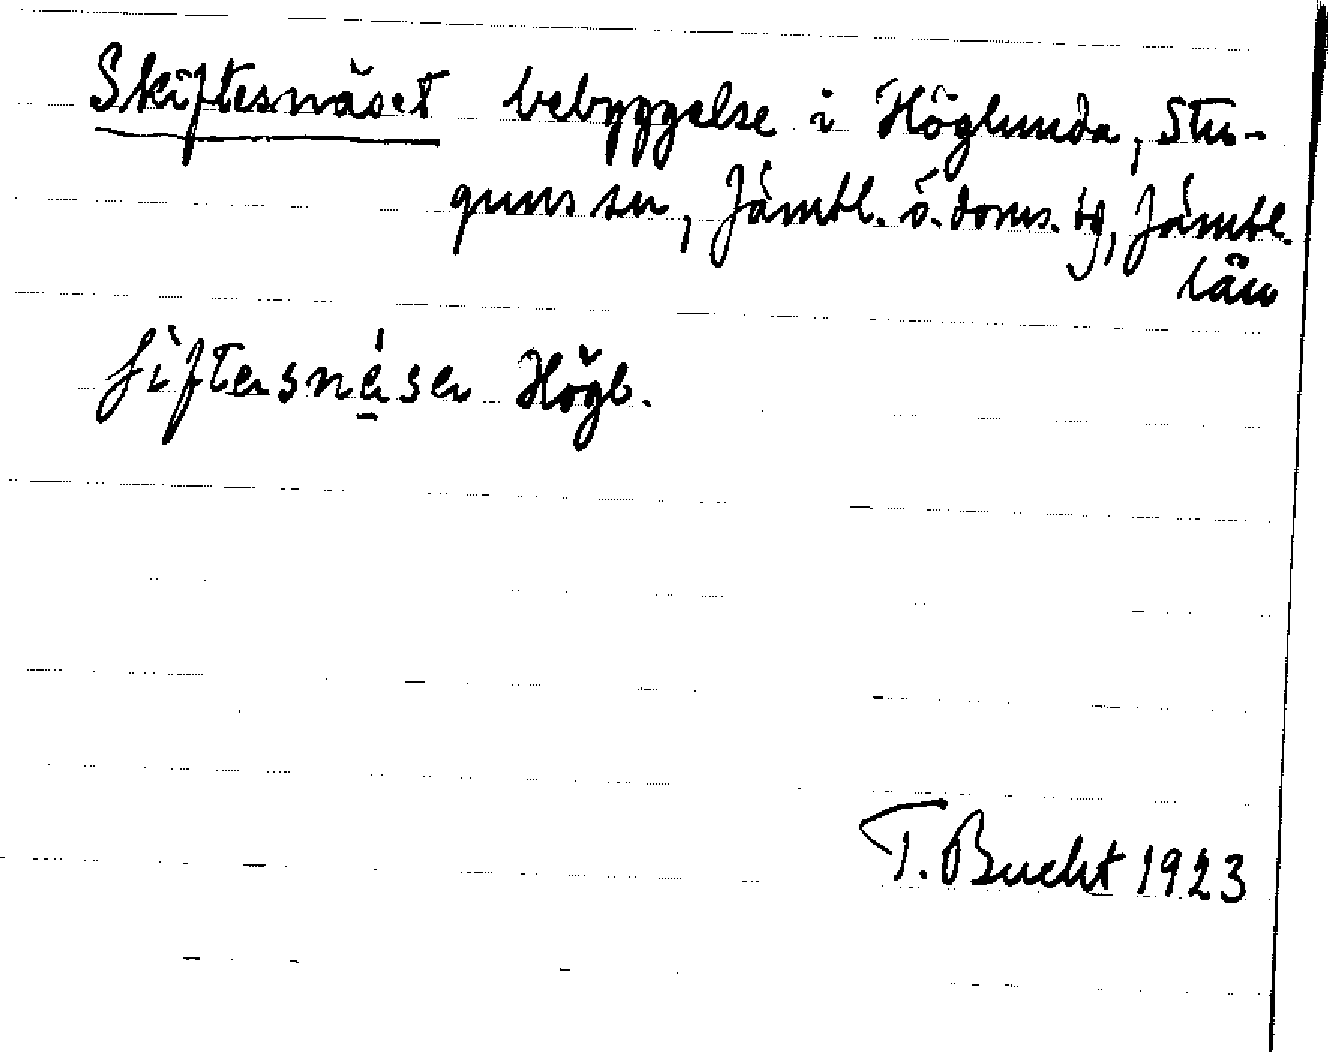 Skiftesnäset bebyggelse i Höglunda, Stu-
guns sn, Jämtl. ö. doms. tg, Jämtl.
län
ʃiftesnése Högl.
T. Bucht 1923